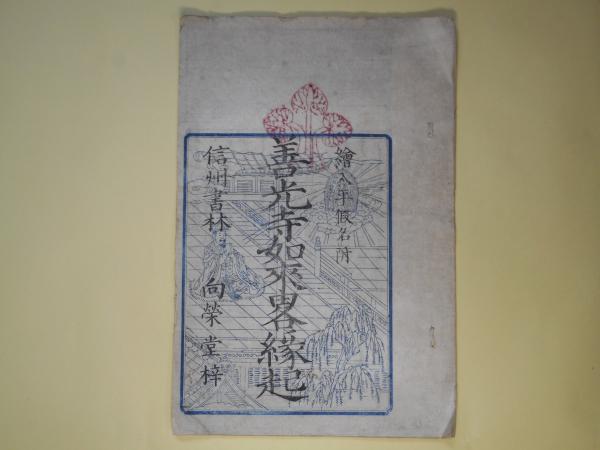 繪入平假名附
善光寺如來畧縁起
信州書林 向榮堂梓